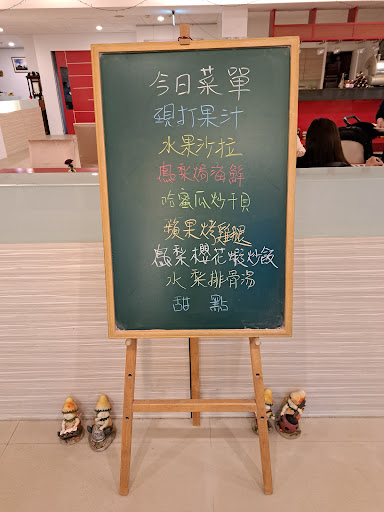 今日菜單
現打果汁
水果沙拉
鳳梨焗海鮮
哈蜜瓜炒干貝
蘋果烤雞腿
鳳梨櫻花蝦炒飯
水梨排骨湯
甜點